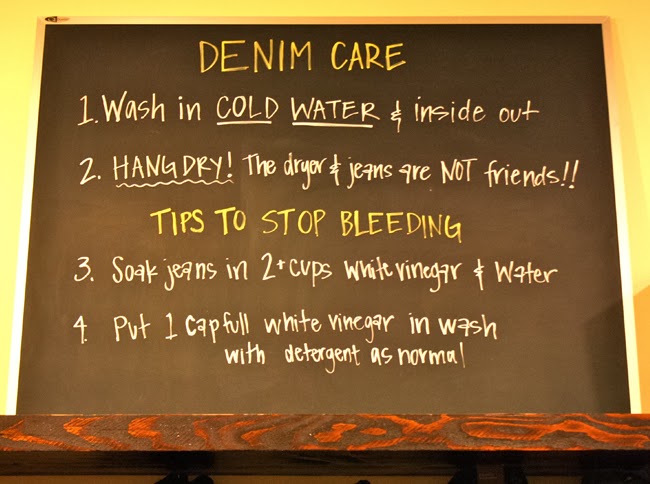 DENIM CARE
1. Wash in COLD WATER & inside out
2. HANG DRY! The dryer & jeans are NOT friends!!
TIPS TO STOP BLEEDING
3. Soak jeans in 2+ cups white vinegar & water
4. Put 1 capfull white vinegar in wash
with detergent as normal